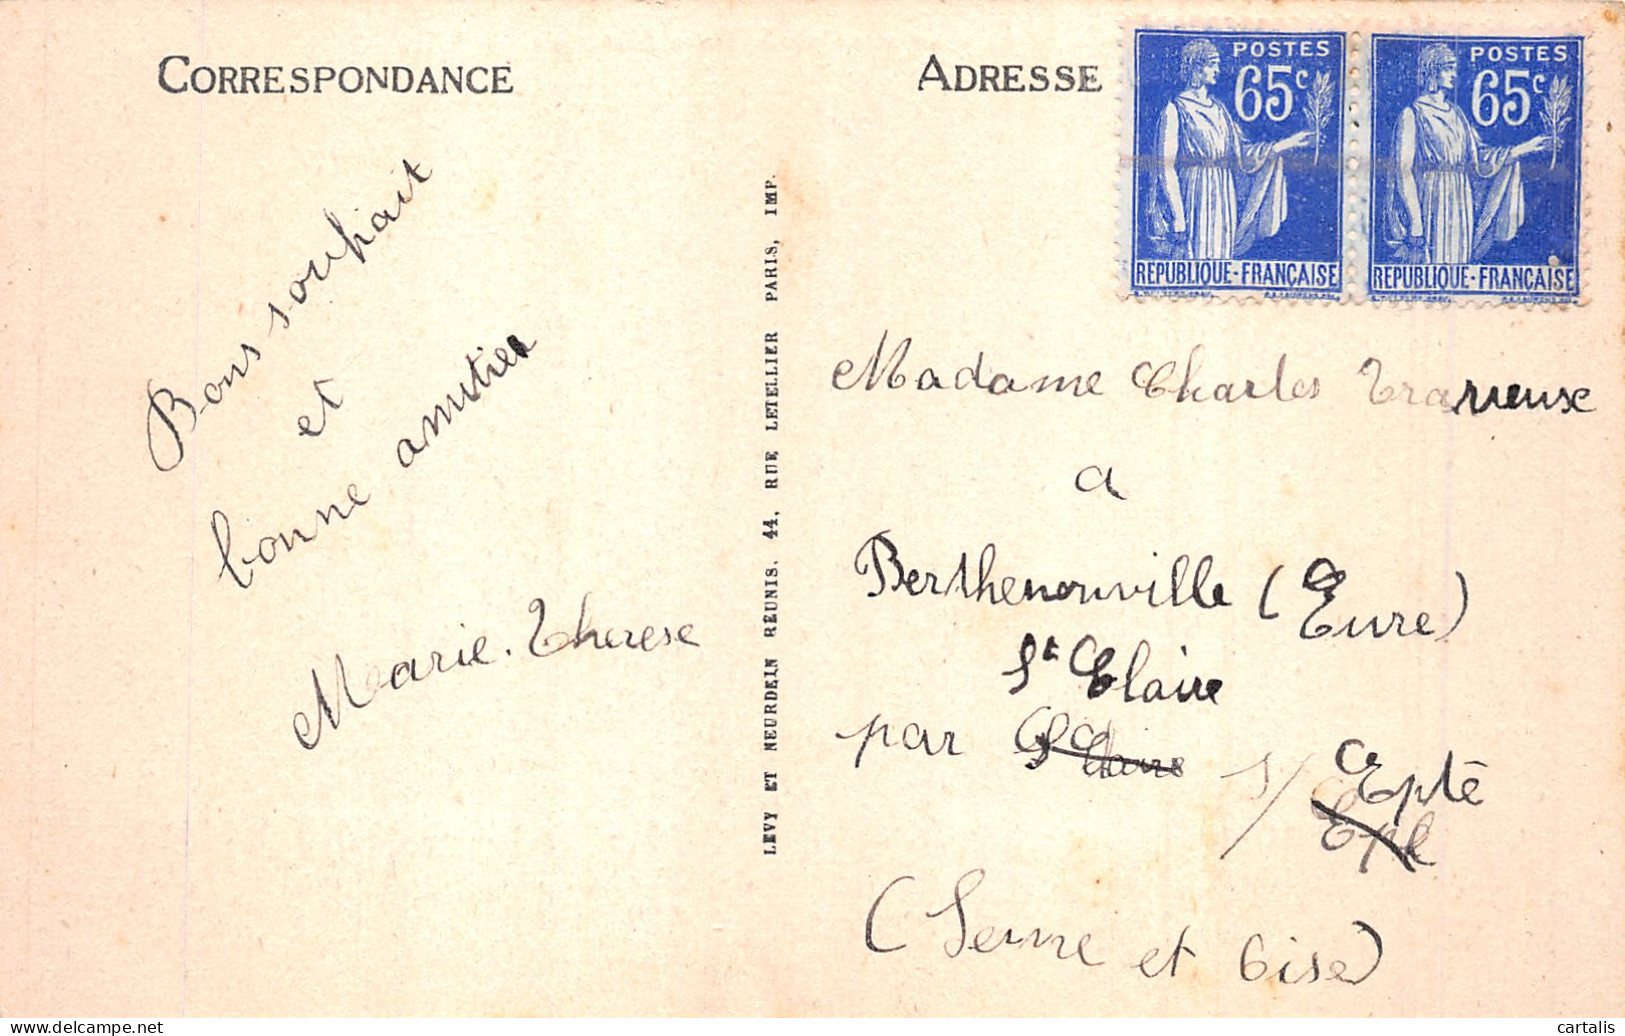 CORRESPONDANCE
Bons souhait
et
bonne amitiés
Marie-Therese
LEVY ET NEURDEIN RÉUNIS. 44. RUE LETELLIER PARIS, IMP.
ADRESSE
POSTES
65c
RÉPUBLIQUE-FRANÇAISE
POSTES
65c
RÉPUBLIQUE-FRANÇAISE
Madame Charles
a
Berthenonville (Eure)
St Claire
par St Claire s/ Epte
(Seine et Oise)
delcampe.net
cartalis